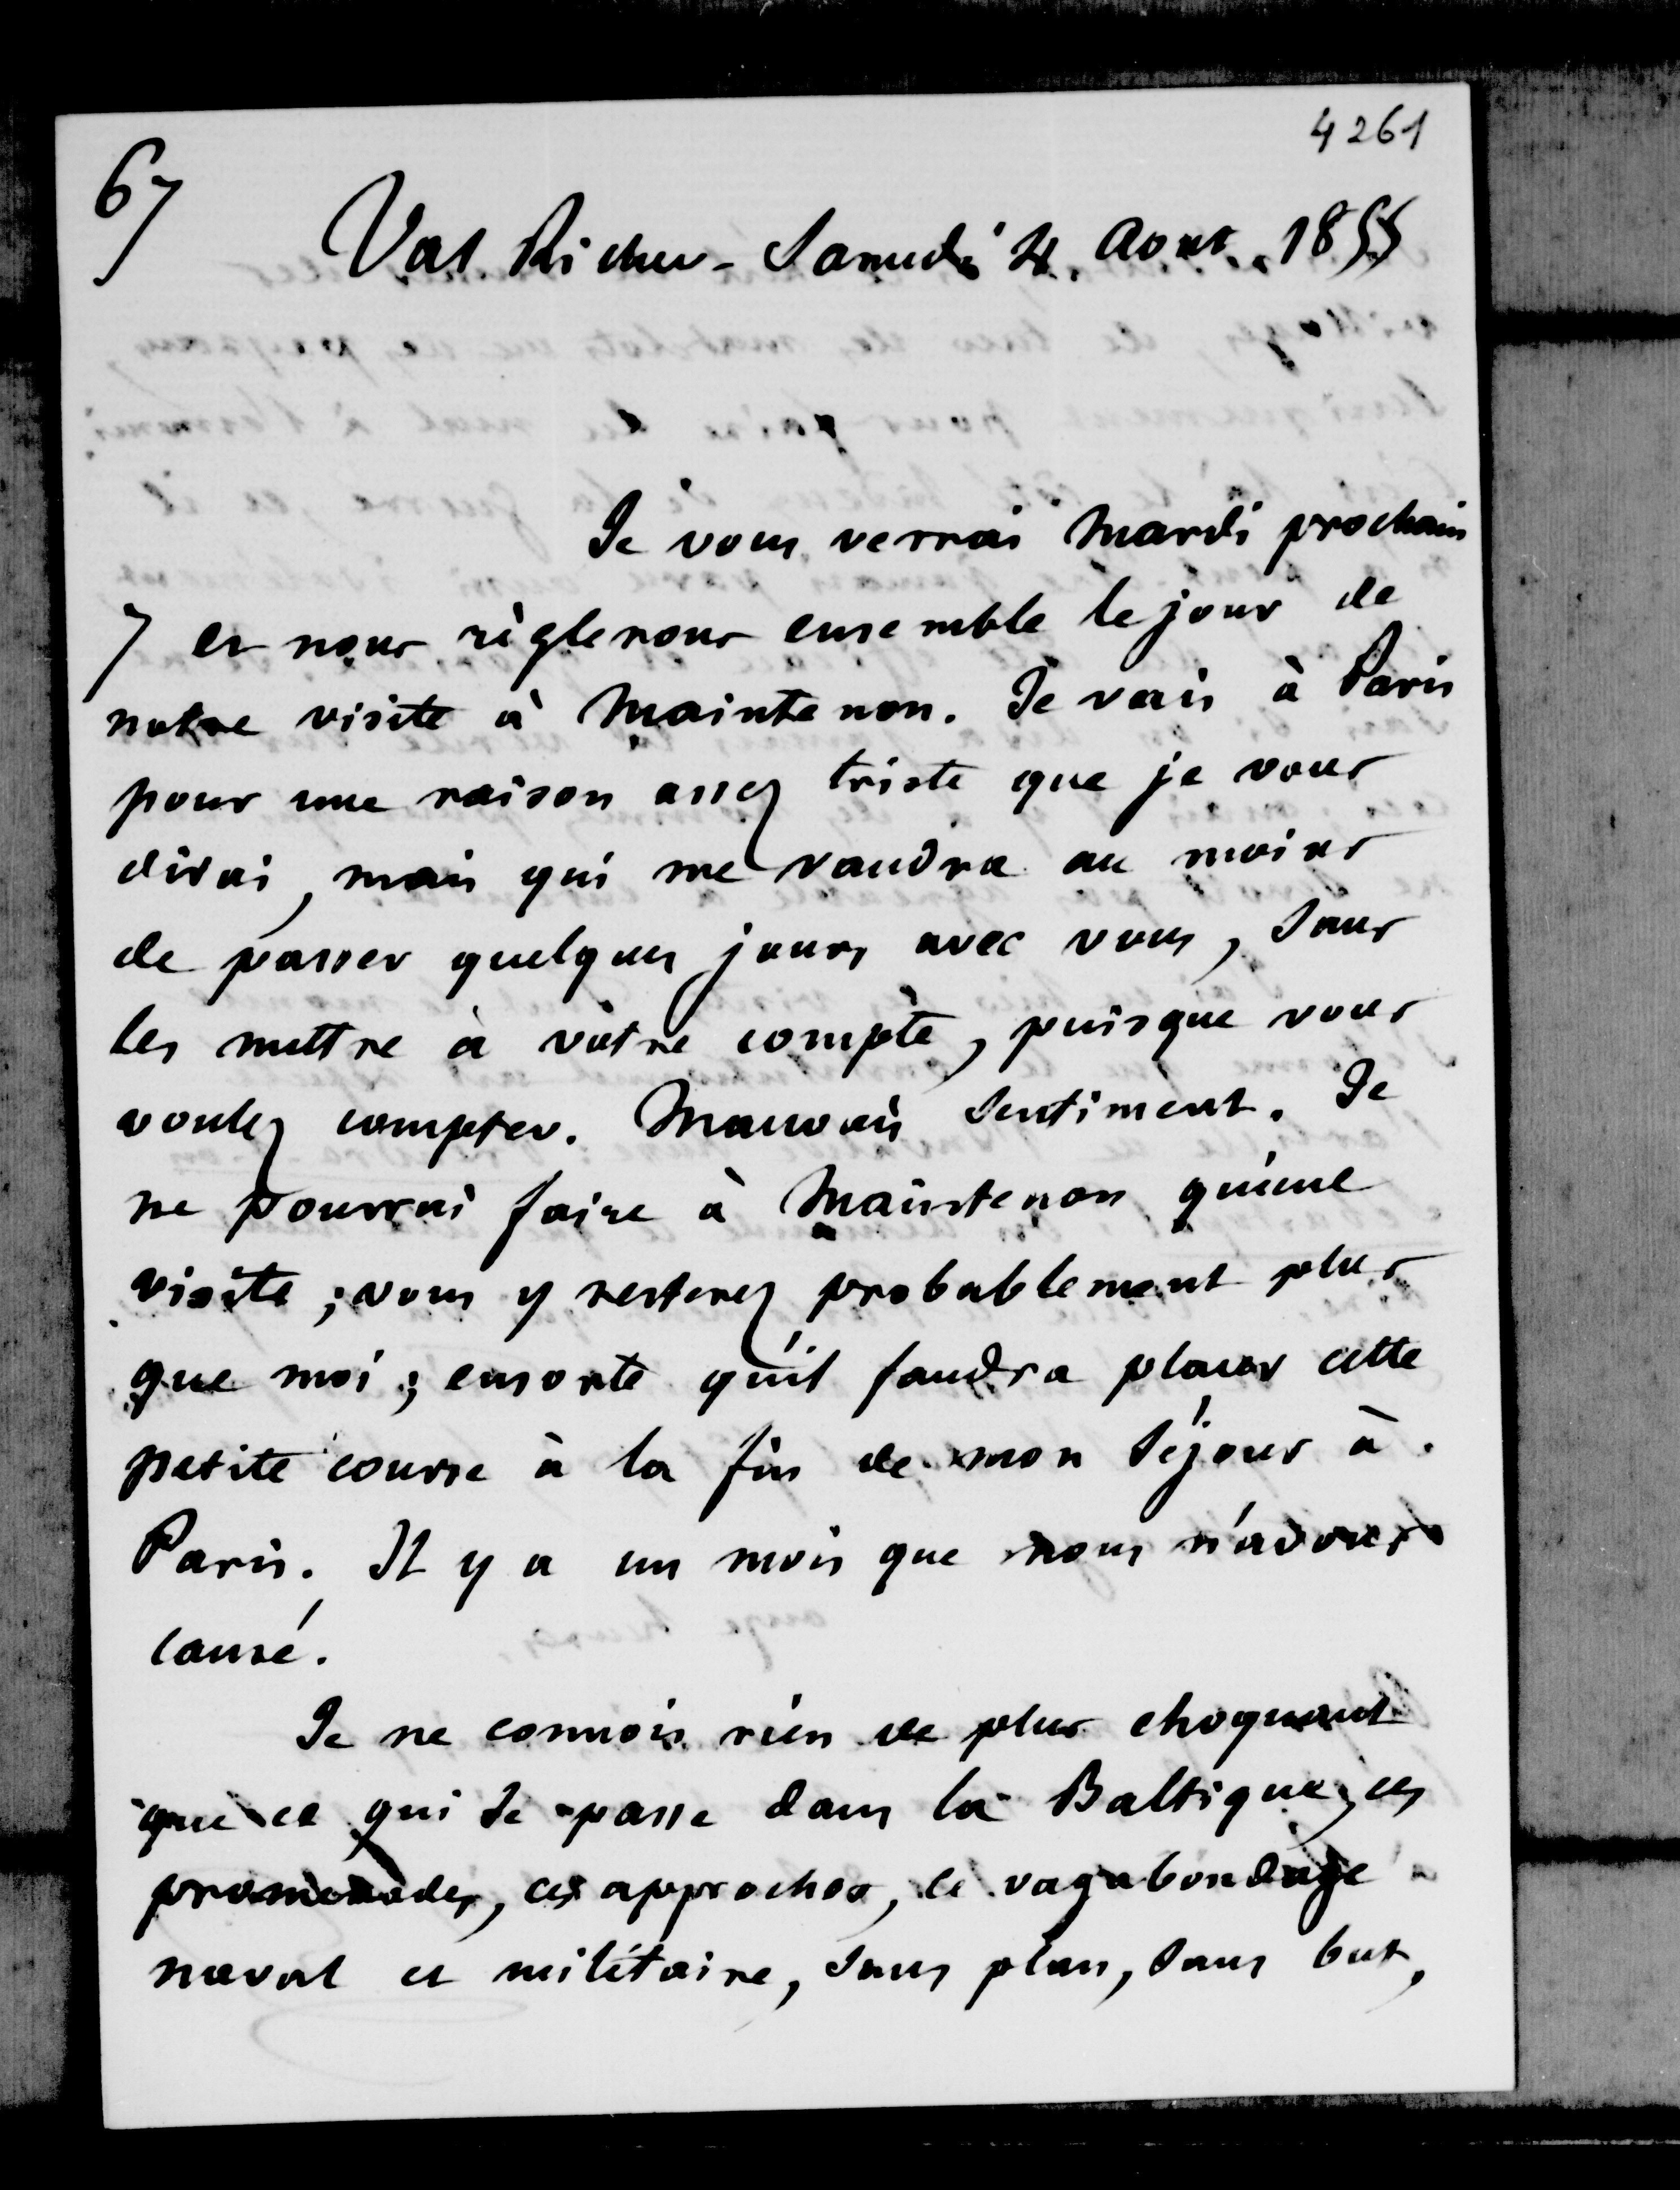 4261
67
Val Richer - Samedi 4. Aout. 1855
Je vous verrai Mardi prochain
7 et nous règlerons ensemble le jour de
notre visite à Maintenon. Je vais à Paris
pour une raison assez triste que je vous
dirai, mais qui me vaudra au moins
de passer quelques jours avec vous, sans
les mettre à votre compte, puisque vous
voulez compter. Mauvais sentiment. Je
ne pourrai faire à Maintenon qu'une
visite ; vous y resterez probablement plus
que moi ; ensorte qu'il faudra placer cette
petite course à la fin de mon séjour à
Paris. Il y a un mois que nous n'avons
causé.
Je ne connois rien de plus choquant
que ce qui se passe dans la Baltique, ces
promenades, ces approches, ce vagabondage
naval et militaire, sans plan, sans but,